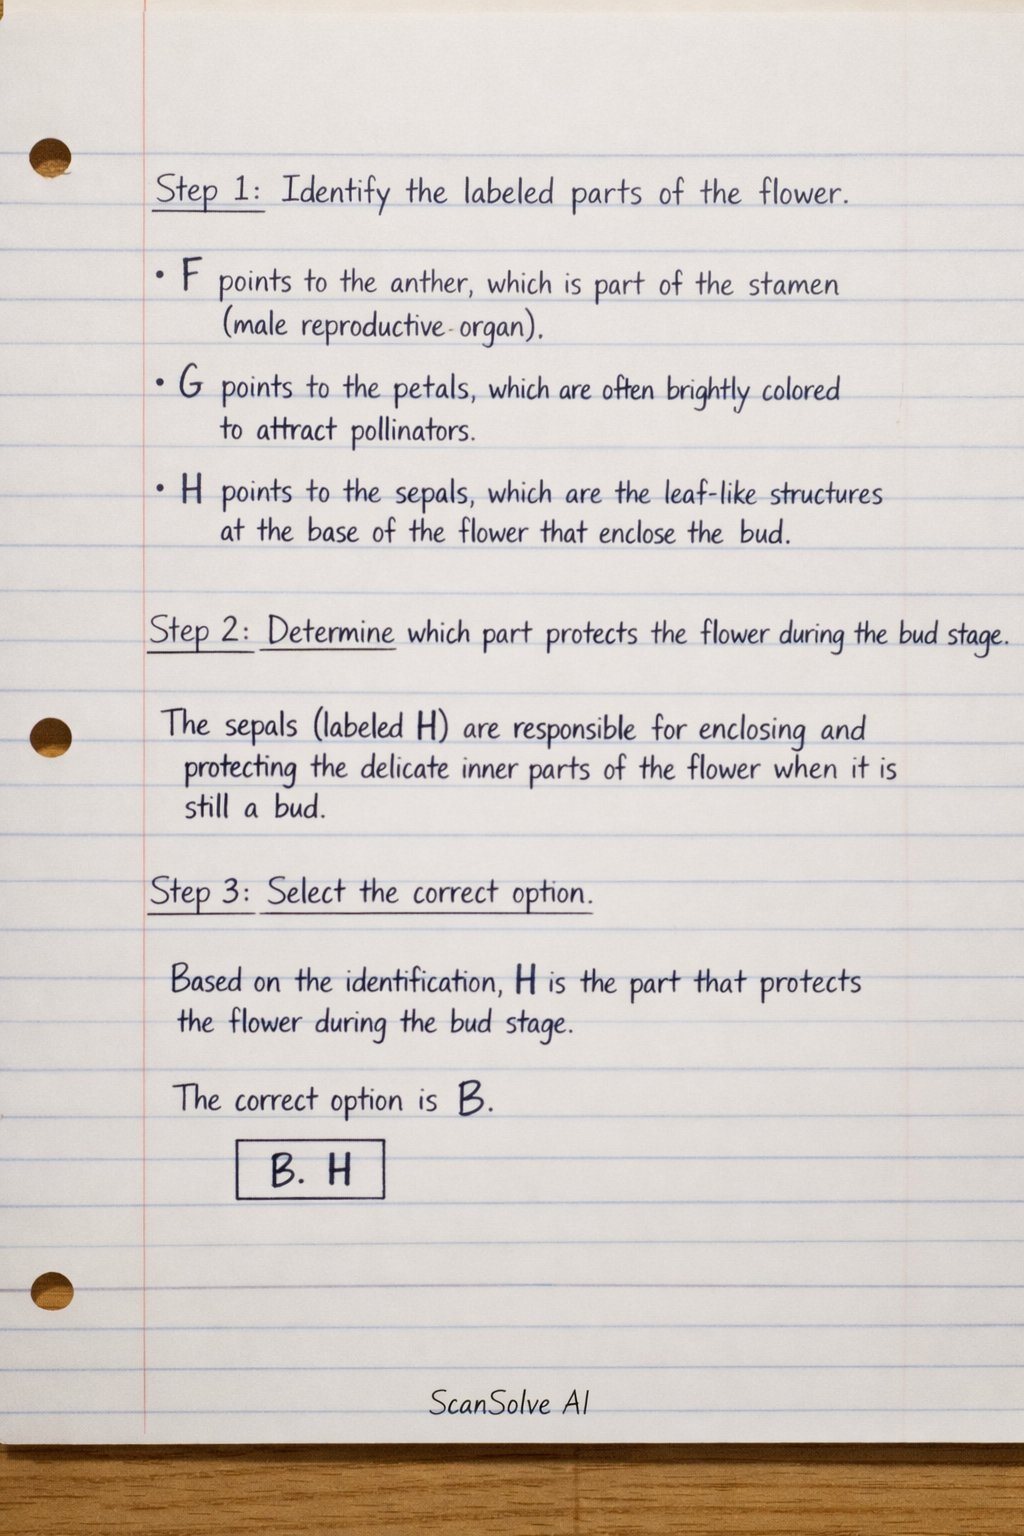 Step 1: Identify the labeled parts of the flower.
• F points to the anther, which is part of the stamen
(male reproductive organ).
• G points to the petals, which are often brightly colored
to attract pollinators.
• H points to the sepals, which are the leaf-like structures
at the base of the flower that enclose the bud.
Step 2: Determine which part protects the flower during the bud stage.
The sepals (labeled H) are responsible for enclosing and
protecting the delicate inner parts of the flower when it is
still a bud.
Step 3: Select the correct option.
Based on the identification, H is the part that protects
the flower during the bud stage.
The correct option is B.
B. H
ScanSolve AI